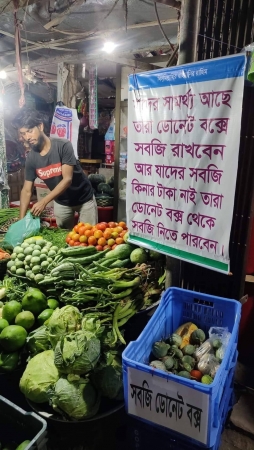 যাদের সামর্থ্য আছে
তারা ডোনেট বক্সে
সবজি রাখবেন
আর যাদের সবজি
কিনার টাকা নাই তারা
ডোনেট বক্স থেকে
সবজি নিতে পারবেন
Supreme
সবজি ডোনেট বক্স